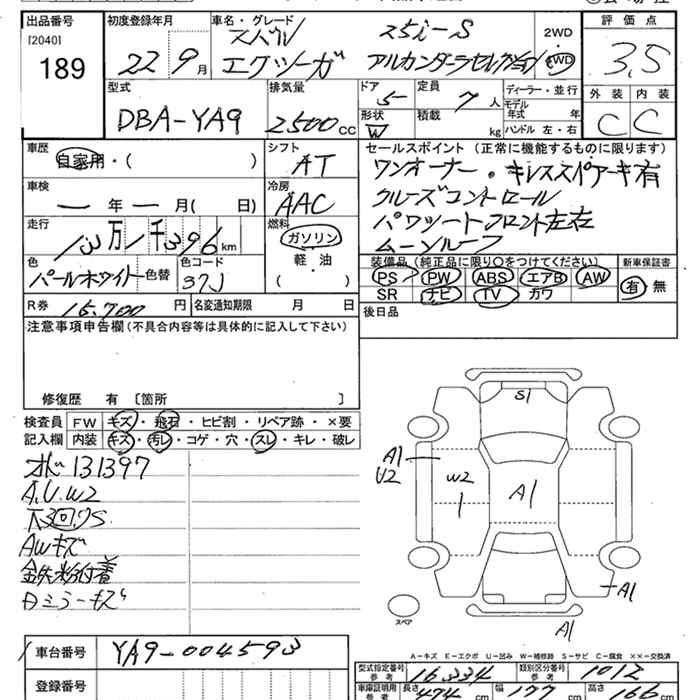 出品番号
[2040]
189
初度登録年月
22 9月
車名・グレード
スバル 25i-S
エクシーガ アルカンターラセレクション
2WD
4WD
評価点
3.5
外装 内装
C C
型式
DBA-YA9
排気量
2500cc
ドア
5
定員
7人
形状
W
積載
kg
ディーラー・並行
モデル年式 年
ハンドル 左・右
車歴
自家用・( )
シフト
AT
車検
ー年ー月( 日)
冷房
AAC
走行
13万1千396km
燃料
ガソリン
軽・油
( )
色
パールホワイト
色替
色コード
37J
R券 15,700円
名変通知期限 月 日
セールスポイント (正常に機能するものに限ります)
ワンオーナー・キレススペアキー有
クルーズコントロール
パワシートフロント左右
ムーンルーフ
装備品(純正品に限り○をつけてください)
PS PW ABS エアB AW
SR ナビ TV カワ
新車保証書
有 無
後日品
注意事項申告欄(不具合内容等は具体的に記入して下さい)
修復歴 有 〔箇所 〕
検査員記入欄
FW キズ・飛石・ヒビ割・リペア跡・×要
内装 キズ・汚レ・コゲ・穴・スレ・キレ・破レ
オド131397
A.U.W2
下回りS
AWキズ
鉄粉付着
Dミラーキズ
S1
A1
U2
W2
A1
A1
A1
スペア
A-キズ E-エクボ U-凹み W-補修跡 S-サビ C-腐食 ××-交換済
車台番号 YA9-004593
登録番号
型式指定番号
参考
16334
類別区分番号
参考
1012
車庫証明用
参考
長さ
474cm
幅
177cm
高さ
166cm